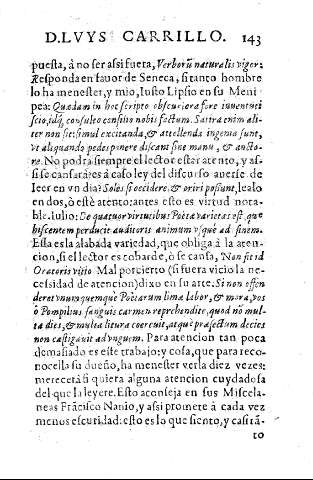 D. LVYS CARRILLO. 143
puesta, à no ser assi fuera, Verborũ naturalis vigor:
Responda en fauor de Seneca, si tanto hombre
lo ha menester, y mio, Iusto Lipsio en su Meni
pea: Quadam in hoc scripto obscuriora fore inuentuti
scio, idq; consuleo consilio nobis factum. Satira enim ali-
ter non sit: simul excitanda, & attollenda ingenia sunt,
vt aliquando pedes ponere discant sine manu, & aucto-
re. No podrà siempre el lector estar atento, y as-
si se cansarà: es à caso ley del discurso auerse de
leer en vn dia? Soles si occidere, & oriri possunt, lealo
en dos, ò estè atento: antes esto es virtud nota-
ble. Iulio: De quatuor virtutibus Poëtæ varietas est, que
hiscentem perducit auditoris animum vsque ad finem.
Essa es la alabada variedad, que obliga à la aten-
cion, si el lector es cobarde, ò se cansa, Non fit id
Oratoris vitio. Mal por cierto (si fuera vicio la ne-
cessidad de atencion) dixo en su arte. Si non offen
deret vnumquemque Poëtarum limæ labor, & mora, vos
ò Pompilius sanguis carmen reprehendite, quod nõ mul-
ta dies, & multa litura coercuit, atque præsectum decies
non castigauit ad vnguem. Para atencion tan poca
demasiado es este trabajo: y cosa, que para reco-
nocella su dueño, ha menester verla diez vezes:
merecerà si quiera alguna atencion cuydadosa
del que la leyere. Esto aconseja en sus Miscela-
neas Frãcisco Nanio, y assi promete à cada vez
menos escuridad: esto es lo que siento, y casi tã-
to